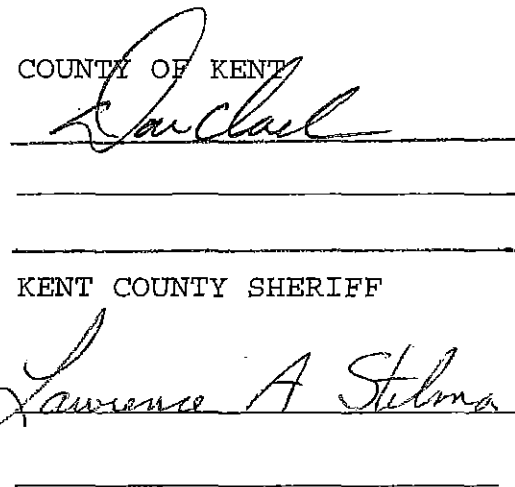 COUNTY OF KENT
KENT COUNTY SHERIFF
Lawrence A Stelma